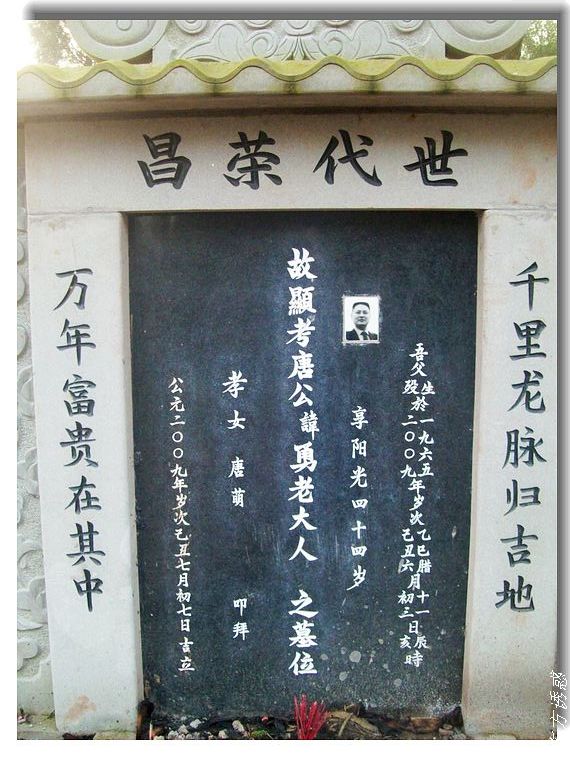 世代荣昌
千里龙脉归吉地
吾父生於一九六五年岁次乙巳腊十一日辰時
殁二〇〇九年岁次己丑六月初三亥
享阳光四十四岁
故顯考唐公諱勇老大人 之墓位
孝女 唐萌 叩拜
公元二〇〇九年岁次己丑七月初七日吉立
万年富贵在其中
方诱惑